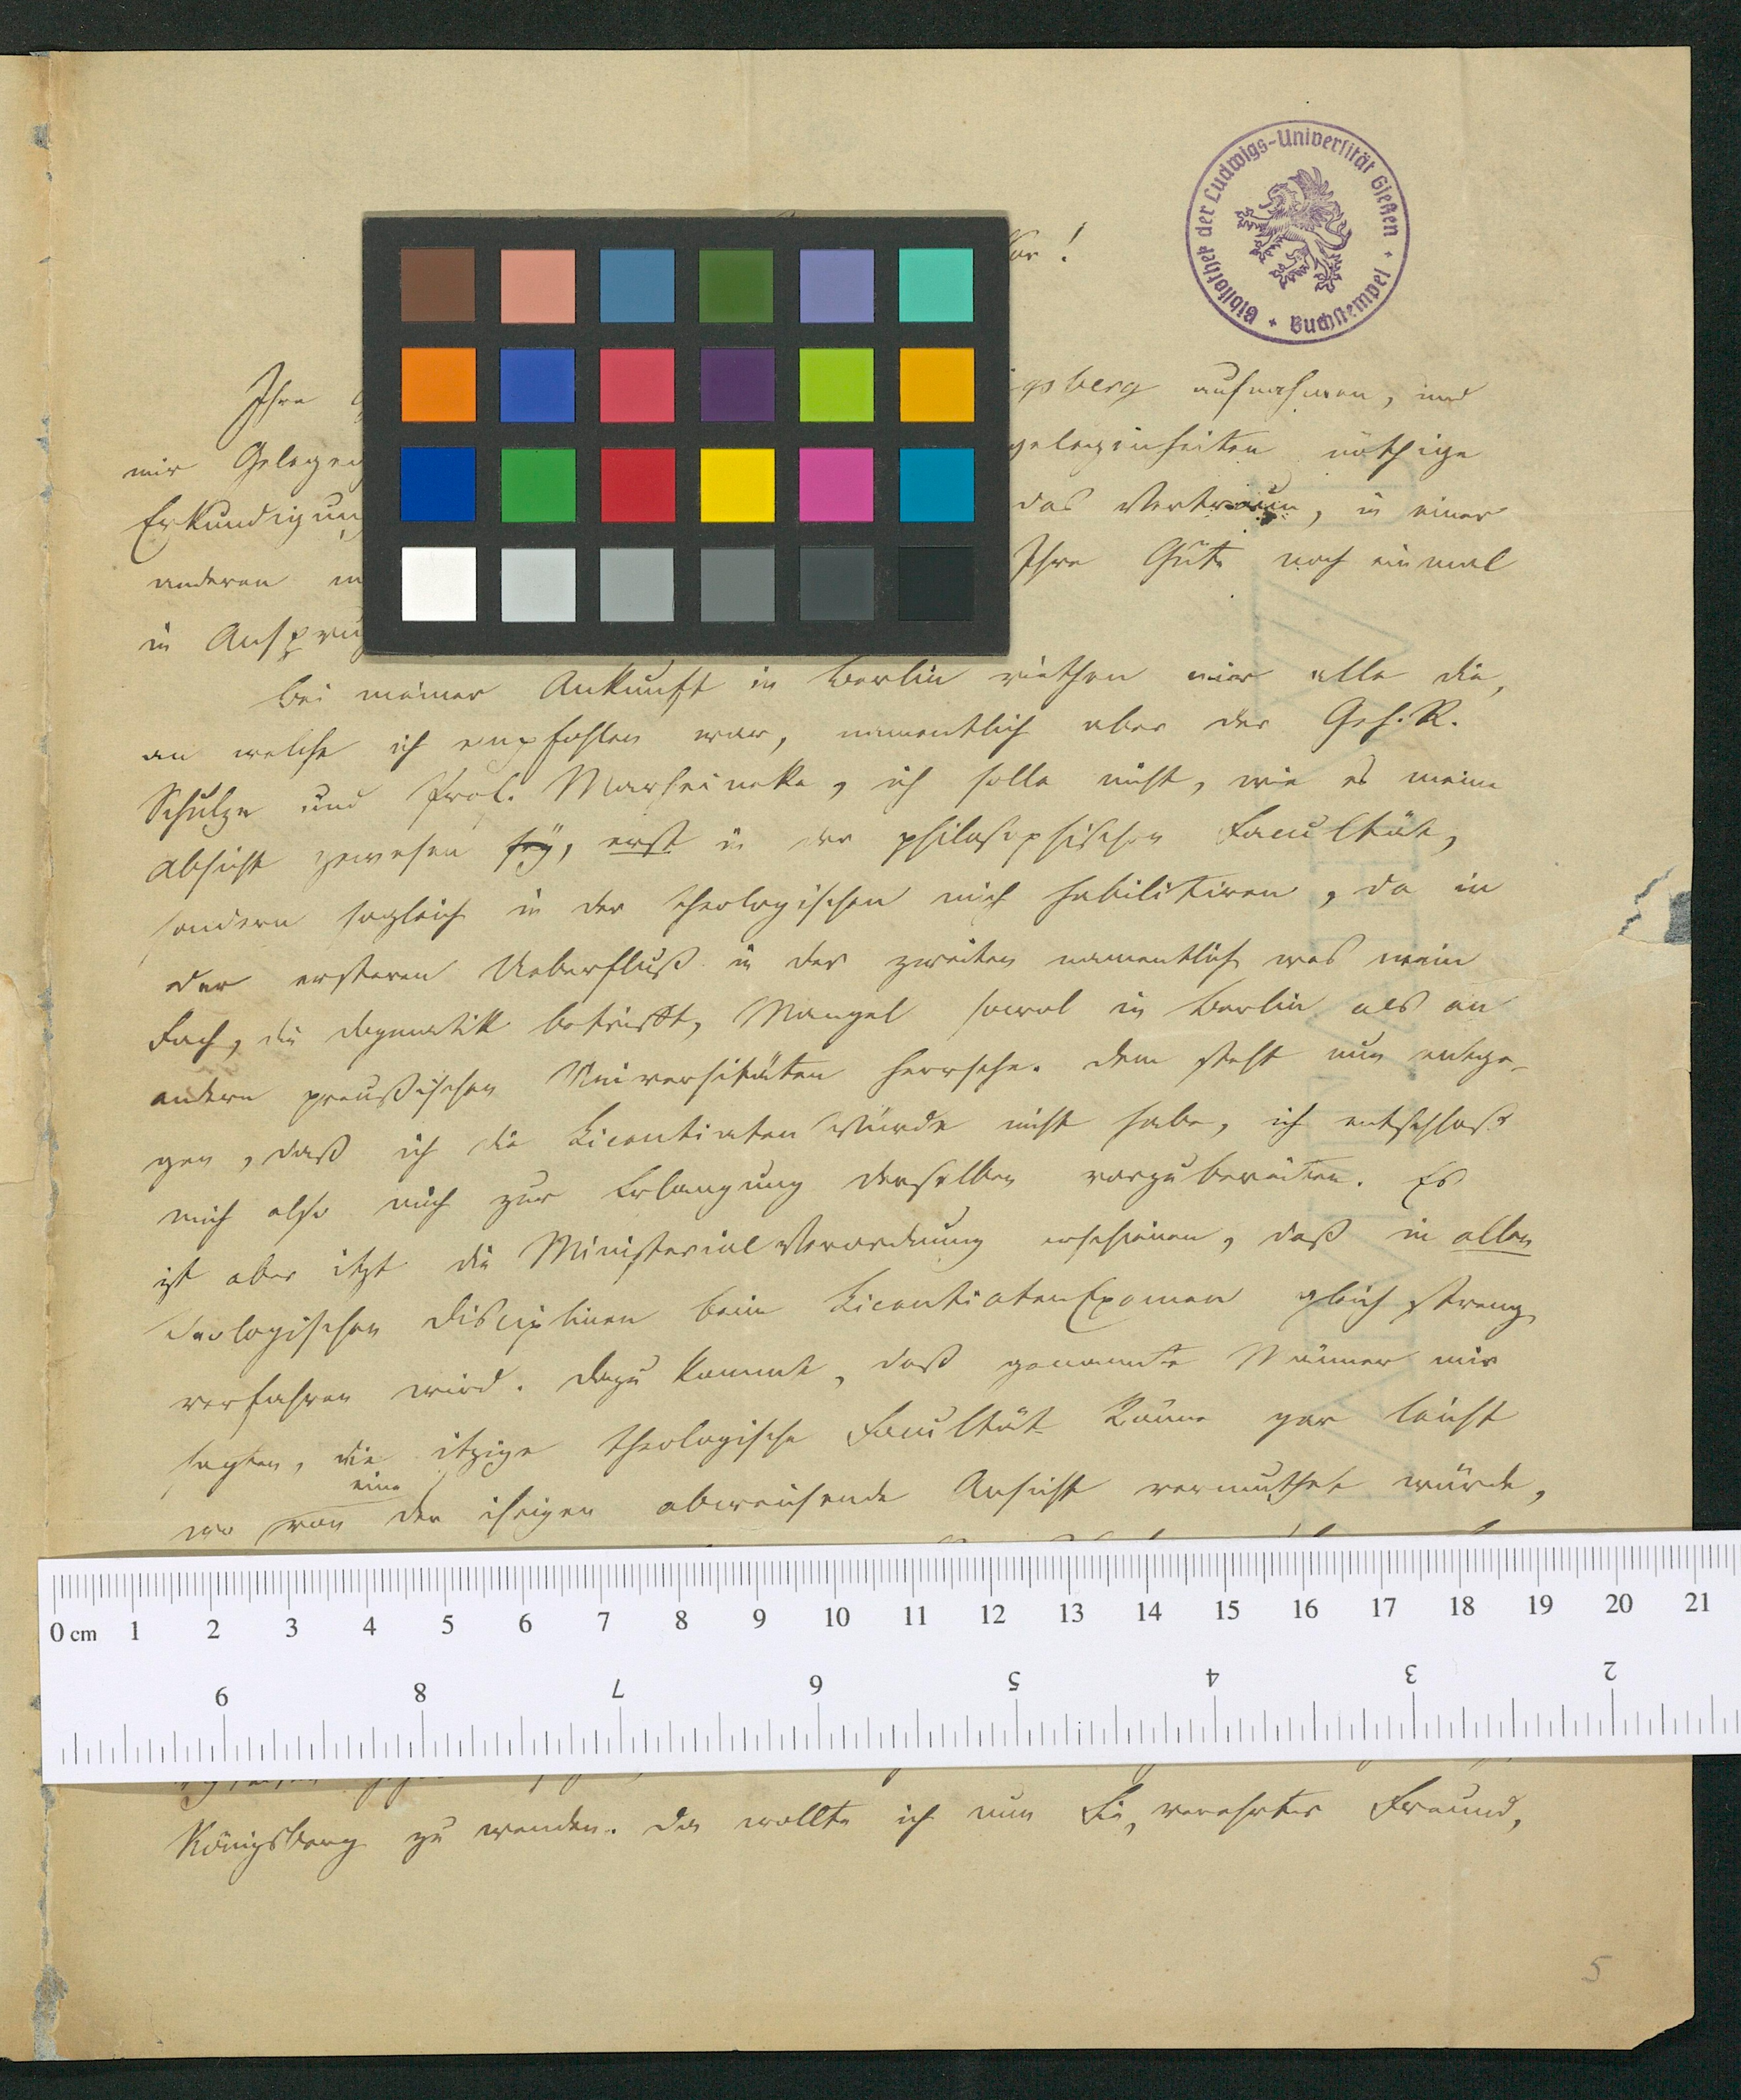 Bibliothek der Ludwigs-Universität Gießen + Buchstempel +
Ihre gsberg aufnahmen, und
mir Gelegen gelegenheiten nöthige
Erkundigun das Vertrauen, in einer
anderen Ihre Güte noch einmal
in Anspru
Bei meiner Ankunft in Berlin riethen mir alle die,
an welche ich empfohlen war, namentlich aber der Geh. R.
Schulze und Prof. Marheineke, ich solle nicht, wie es meine
Absicht gewesen sey, erst in der philosophischen Facultät,
sondern sogleich in der theologischen mich habilitiren, da in
der ersteren Ueberfluß in der zweiten namentlich was mein
Fach, die Dogmatik betrifft, Mangel sowol in Berlin als an
andern preußischen Universitäten herrsche. Dem steht nun entge-
gen, daß ich die Licentiaten Würde nicht habe, ich entschloß
mich also mich zur Erlangung derselben vorzubereiten. Es
ist aber itzt die Ministerial Verordnung erschienen, daß in allen
theologischen Disciplinen beim Licentiaten Examen gleich streng
verfahren wird. Dazu kommt, daß genannte Männer mir
sagten, die itzige theologische Facultät könne gar leicht
eine
wo von der ihrigen abweichende Ansicht vermuthet würde,
0 cm 1 2 3 4 5 6 7 8 9 10 11 12 13 14 15 16 17 18 19 20 21
9 8 7 6 5 4 3 2
Königsberg zu wenden. Da wollte ich nun Sie, verehrter Freund,
5